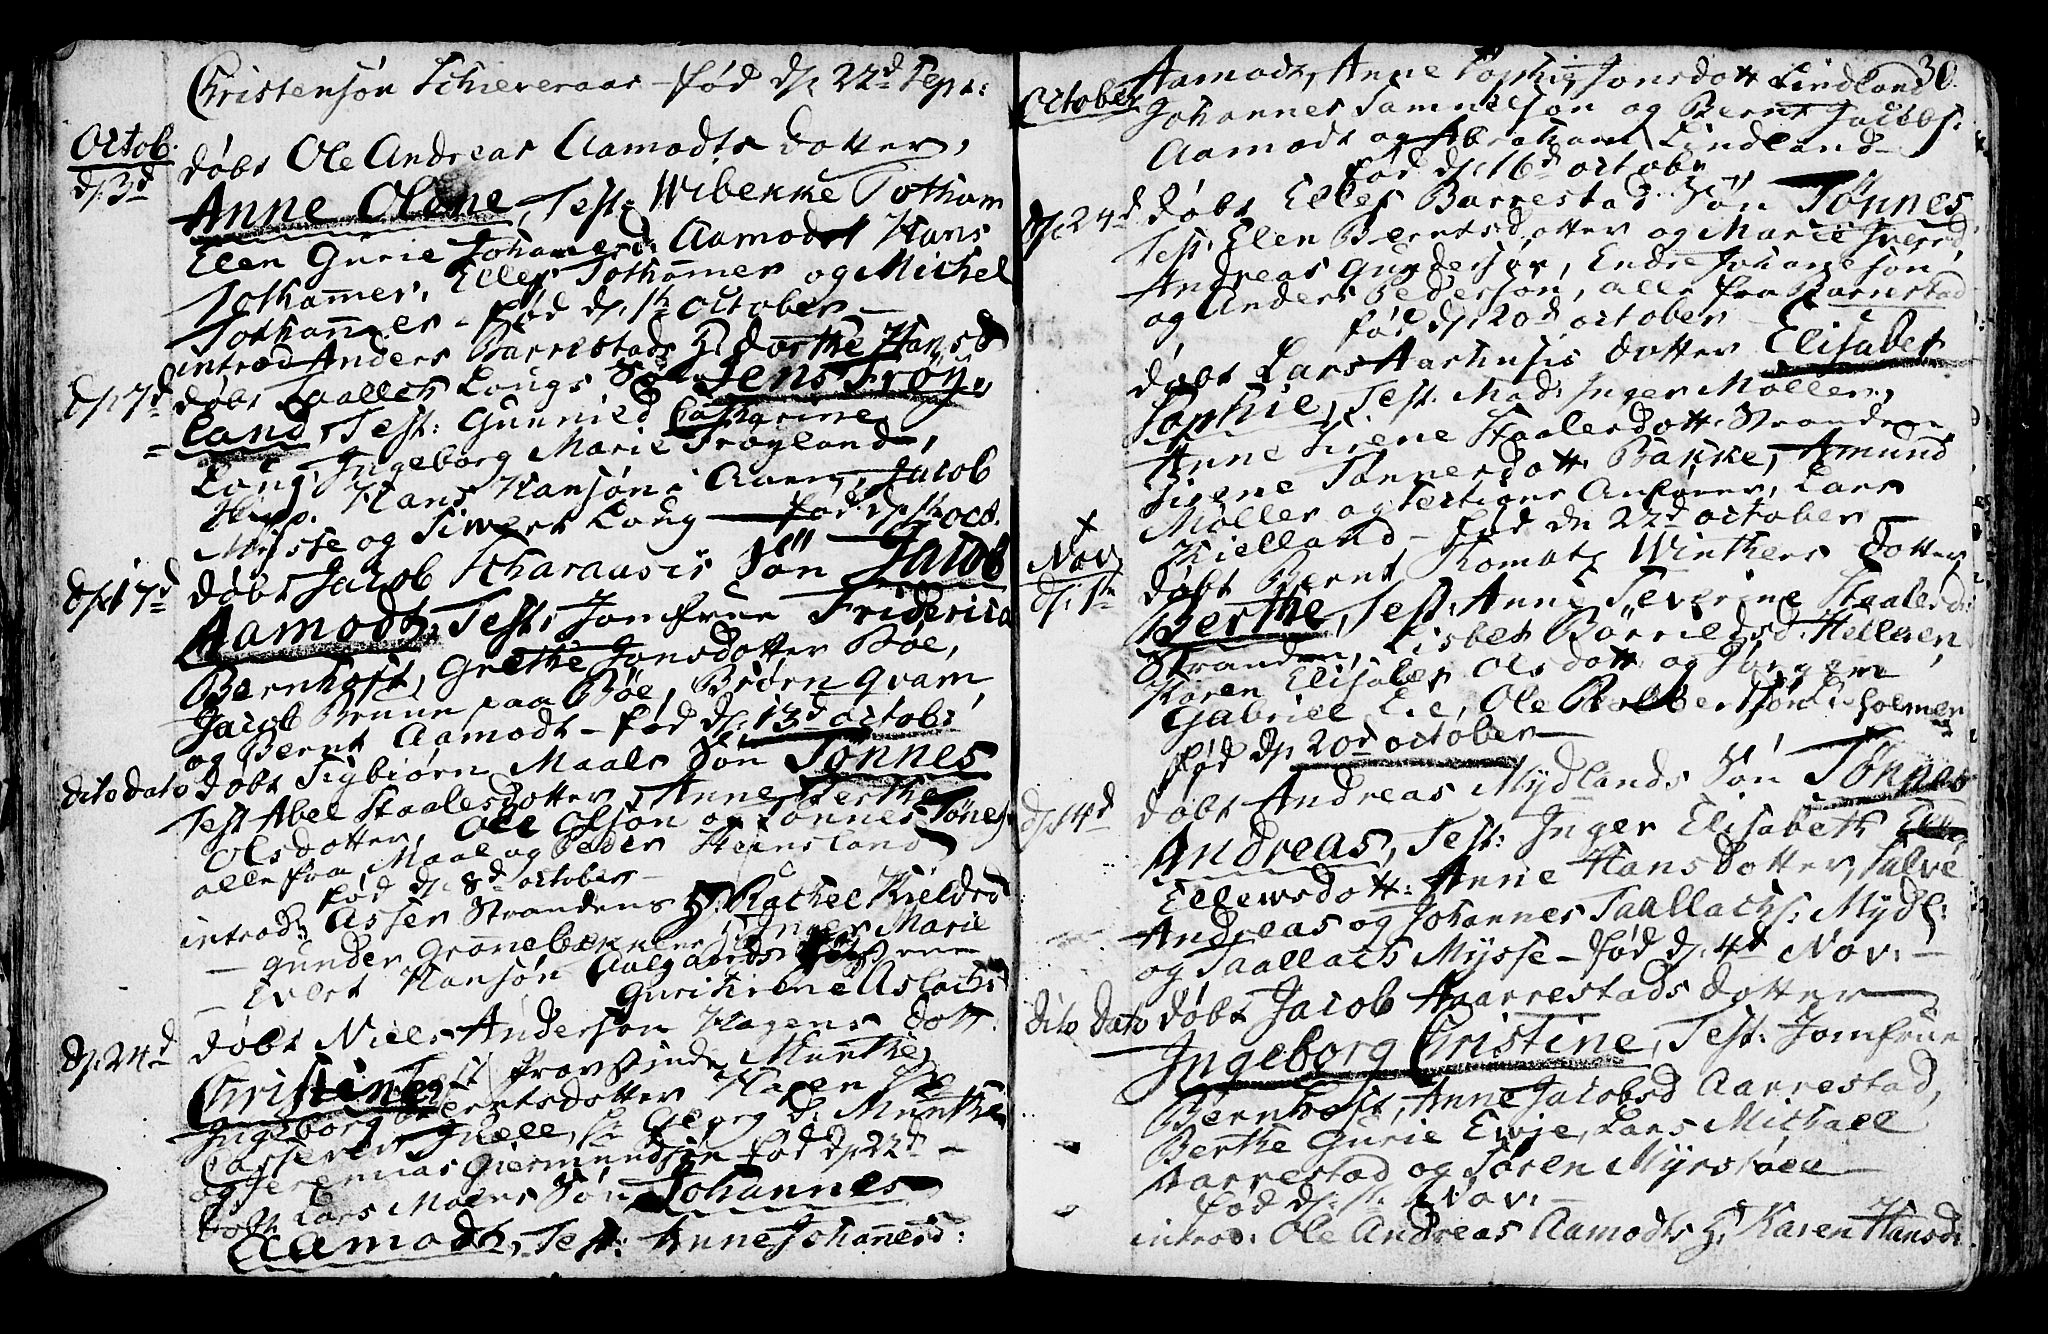 Christensøn Schieveraas – fød d: 22d Sept:
Octob.
d. 3d døbt Ole Andreas Aamodts dotter,
Anne Olene, Test: Wibekke Totham
Ellen Gurie Johannesd: Aamodt Hans
Tothammer, Ellef Tothamer og Michel
Tothammer – fød d. 1st October –
introd Anders Barrestads H: Dorthe Hansd
d. 7d døbt Taallek Lougs Søn Jens Frøy-
= land, Test: Gunnild Catharine
Loug, Ingeborg Marie Frøyland,
Hans Hansøn i Aaen, Jacob
Mysse og Siwert Loug – fød d. 1st oct.
d. 17d døbt Jacob Scharaasis Søn Jacob
Aamodt, Test: Jomfrue Friderica
Bernhoft, Grethe Jonsdotter Bøe,
Jacob Brune paa Bøe, Biørn Qvam
og Bernt Aamodt – fød d. 13d octob:
dito dato døbt Sigbiørn Maals Søn Tønnes
Test Abel Staalesdotter, Anne Berthe
Olsdotter, Ole Olsøn og Tønnes Tønes:
alle fra Maal og Peder Steinsland
fød d. 8d october –
introd: Asser Strandens H: Rachel Kieldsd
– Gunder Grønnebækkens H: Inger Marie
– Evert Hansøn Aalgaards
Guri Sirene Aslachs
d. 24d døbt Niels Andersøn Hagens Dott:
Christine, Test Provstinde Munthe,
Ingeborg Berntsdotter Hagen
Casper Juell, Hr Georg d: Munthe
og Jeremias Giermundsøn fød d. 22d –
døbt Lars Moens Søn Johannes
Aamodt, Test: Anne Johannesd:
30.
October
Aamodt, Anne Sophie Jonsdott Lindland
Johannes Samuelsøn og Bernt Jacobs:
Aamodt og Abraham Lindland
fød d. 16d octobr
d. 24d døbt Ellef Barrestad Søn Tønnes
Test: Elen Berntsdotter og Marie Iversd,
Andreas Gundersøn, Endre Johannesøn
og Anders Pedersøn, alle fra Barrestad
fød d. 20d october –
døbt Lars Aastensis dotter Elisabet
Sophie, Test: Mad: Inger Møller,
Anne Sirene Staalesdott: Stranden
Sirene Tønnesdott: Bakke, Amund
Møller og Lars
Kielland – fød d: 22d october –
Nov.
d. 1st døbt Bernt Romots Winthers dotter
Berthe, Test: Anne Severine Staalesd:
Stranden, Lisbet Børrildsd: Helleren,
Karen Elisabet Olsdott: og Jørgen
Gabriel Lie, Ole Robbertsøn i Holmen
fød d. 20d october –
d. 4d døbt Andreas Mydlands Søn Tønnes
Andreas, Test: Inger Elisabeth
Ellewsdott: Anne Hansdotter, Salve
Andreas og Johannes Taallachs: Mydl:
og Taallach Mysse – fød d. 4d Nov: –
dito dato døbt Jacob Aarrestads dotter
Ingeborg Christine, Test: Jomfrue
Bernhoft, Anne Jacobsd Aarrestad,
Berthe Gurie Ewje, Lars Michael
Aarrestad og Søren Myrstøell
fød d. 1st Nov: –
introd: Ole Andreas Aamodts H: Karen Hansd: